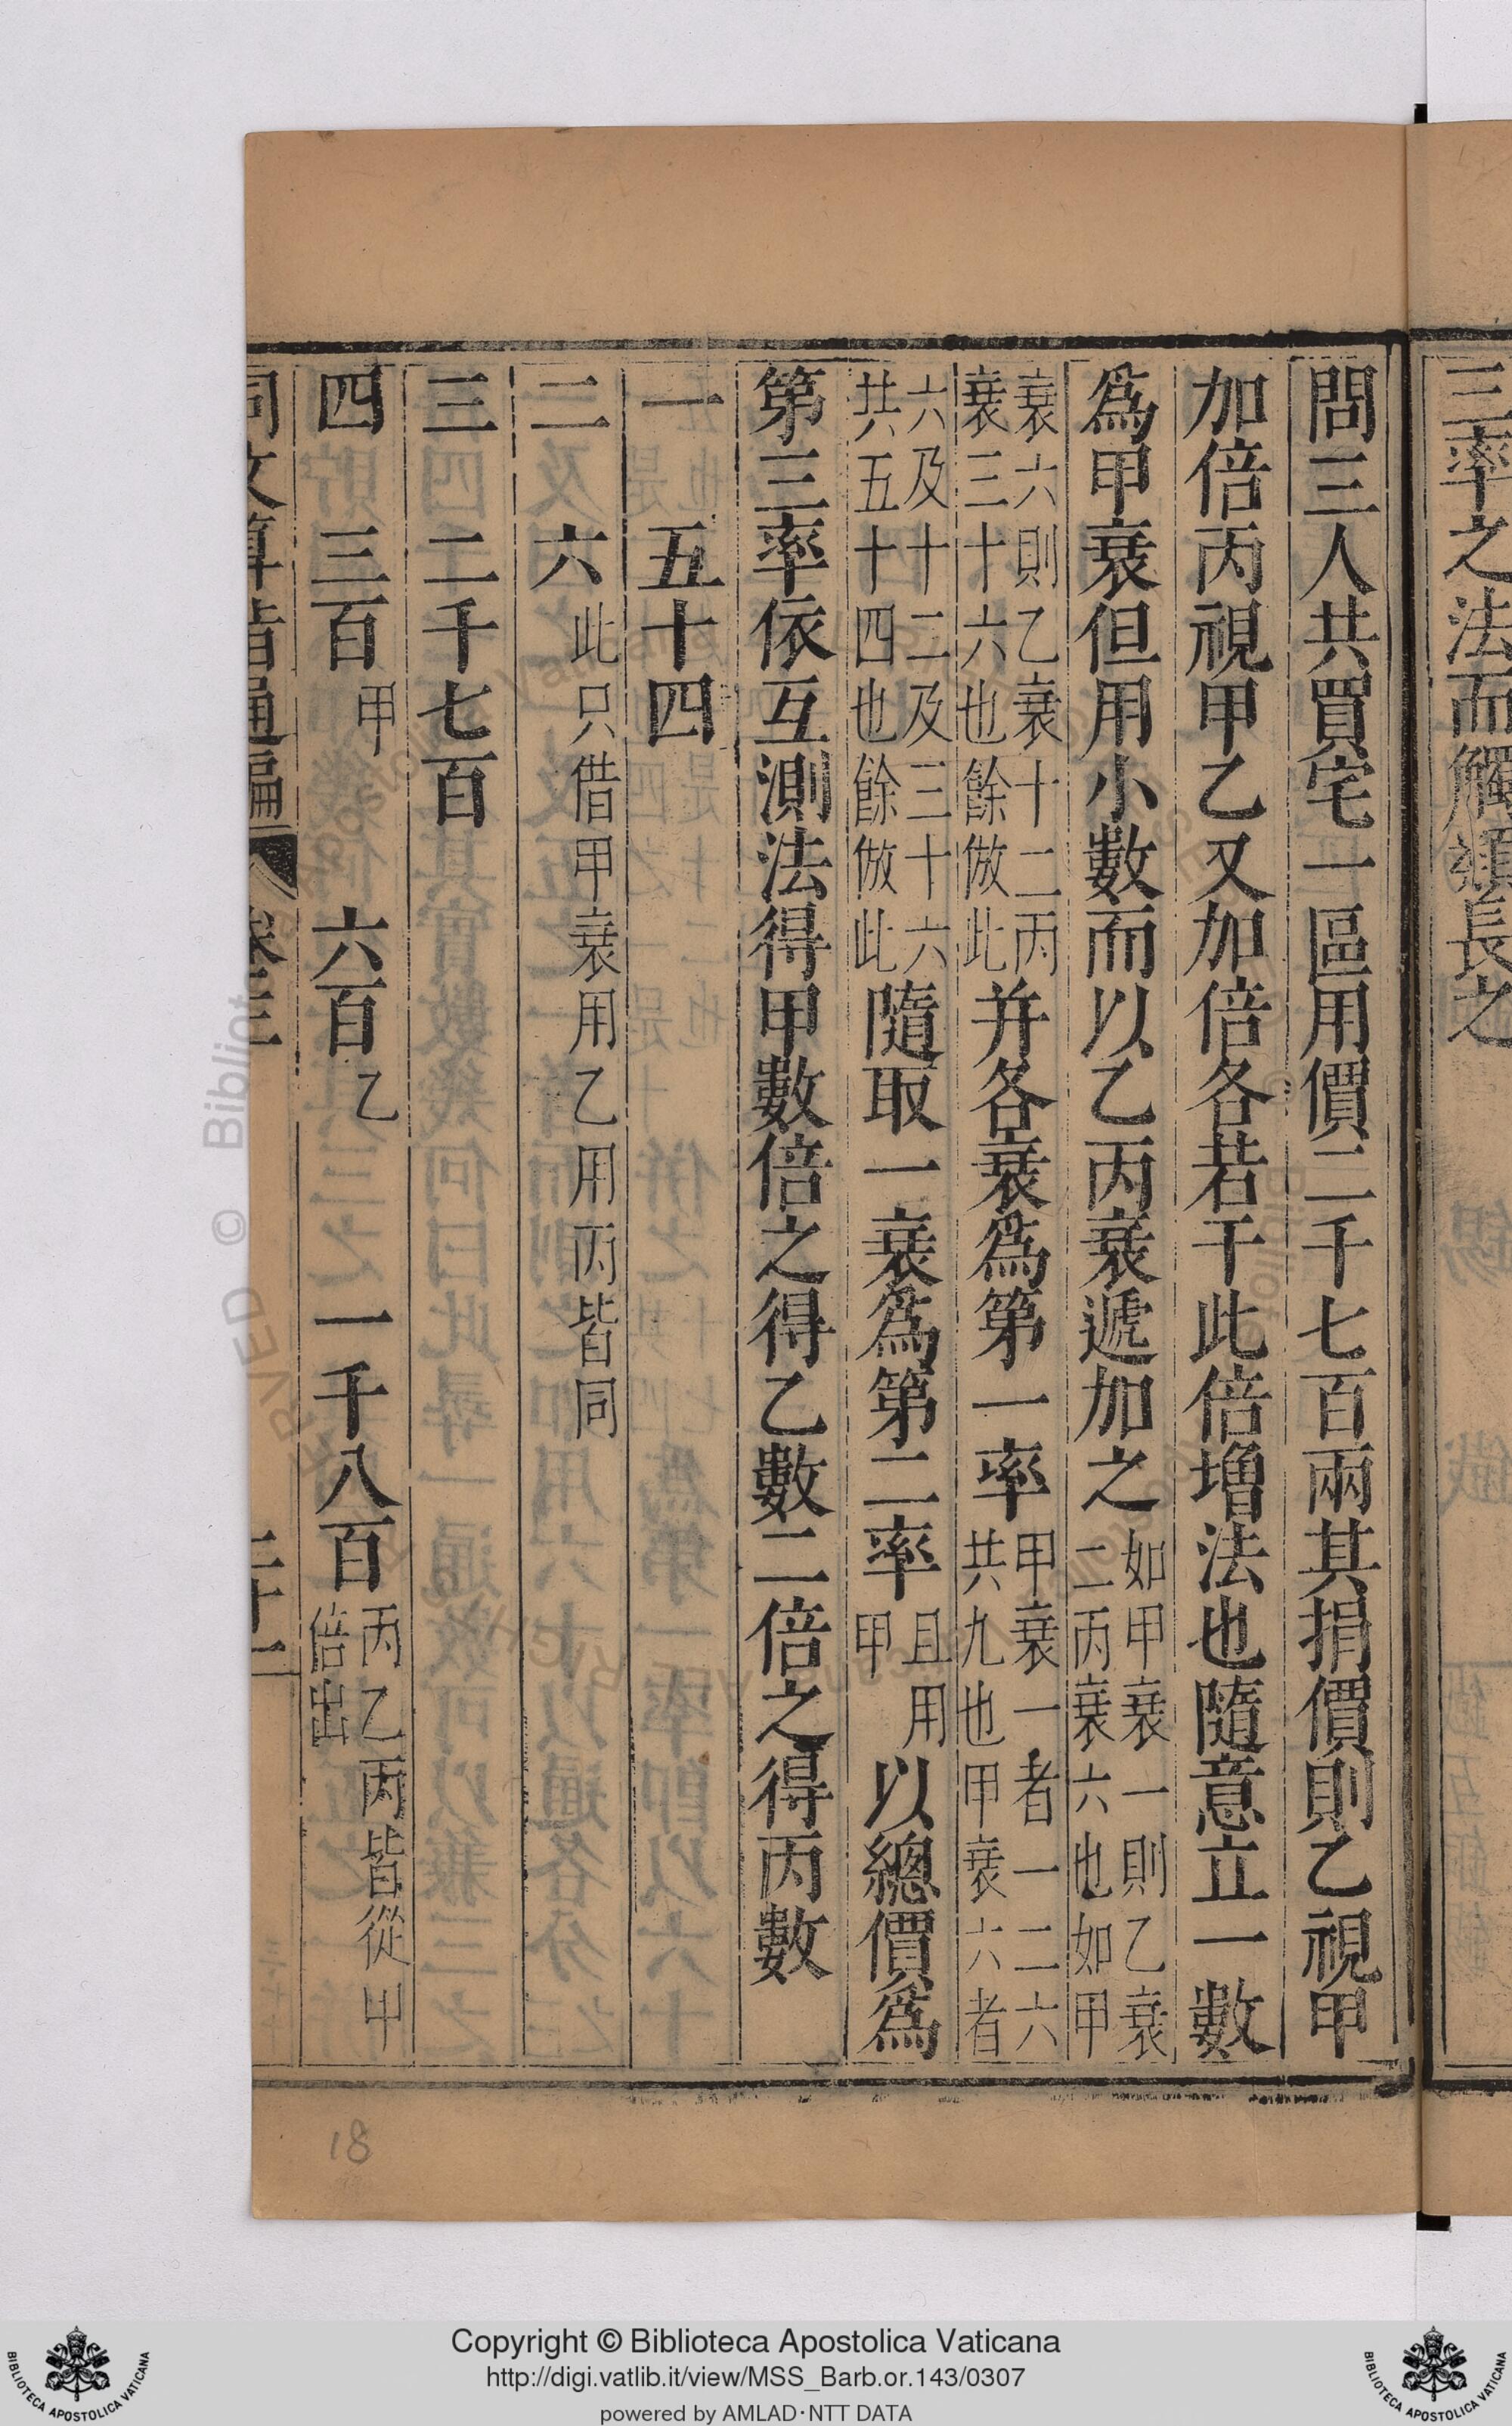 三率之法而觸類長之
問三人共買宅一區用價二千七百兩其捐價則乙視甲
加倍丙視甲乙又加倍各若干此倍增法也隨意立一數
爲甲衰但用小數而以乙丙衰遞加之如甲衰一則乙衰二丙衰六也如甲
衰六則乙衰十二丙衰三十六也餘倣此并各衰爲第一率甲衰一者一二六共九也甲衰六者
六及十二及三十六共五十四也餘倣此隨取一衰爲第二率且用甲以總價爲
第三率依互測法得甲數倍之得乙數二倍之得丙數
一 五十四
二 六此只借甲衰用乙用丙皆同
三 二千七百
四 三百甲 六百乙 一千八百丙乙丙皆從甲倍出
同文算指通編 卷三 二十一
18
Copyright © Biblioteca Apostolica Vaticana
http://digi.vatlib.it/view/MSS_Barb.or.143/0307
powered by AMLAD·NTT DATA
BIBLIOTECA APOSTOLICA VATICANA
BIBLIOTECA APOSTOLICA VATICANA